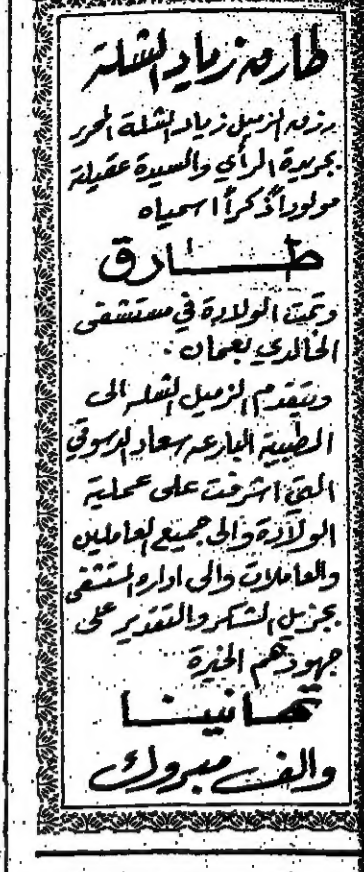 طارق زياد الشلة
رزق الزميل زياد الشلة المحرر
بجريدة الرأي والسيدة عقيلته
مولوداً ذكراً اسمياه
طـــارق
وتمت الولادة في مستشفى
الخالدي بعمان .
ويتقدم الزميل الشله الى
الطبيبة البارعه سعاد الدسوقي
التي اشرفت على عملية
الولادة والى جميع العاملين
والعاملات والى اداره المستشفى
بجزيل الشكر والتقدير على
جهودهم الخيرة
تهـانينــا
والف مبروك